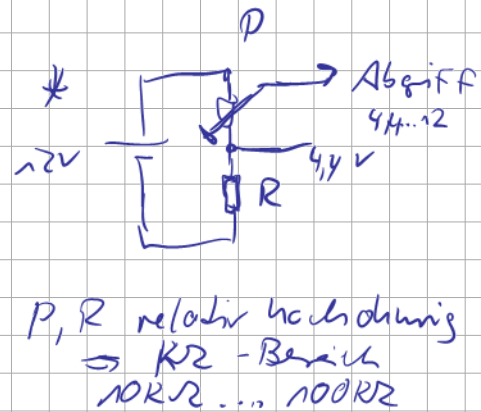 P
*
Abgriff
4,4...12
12V
4,4 V
R
P, R relativ hochohmig
⇒ KΩ - Bereich
10KΩ .... 100KΩ